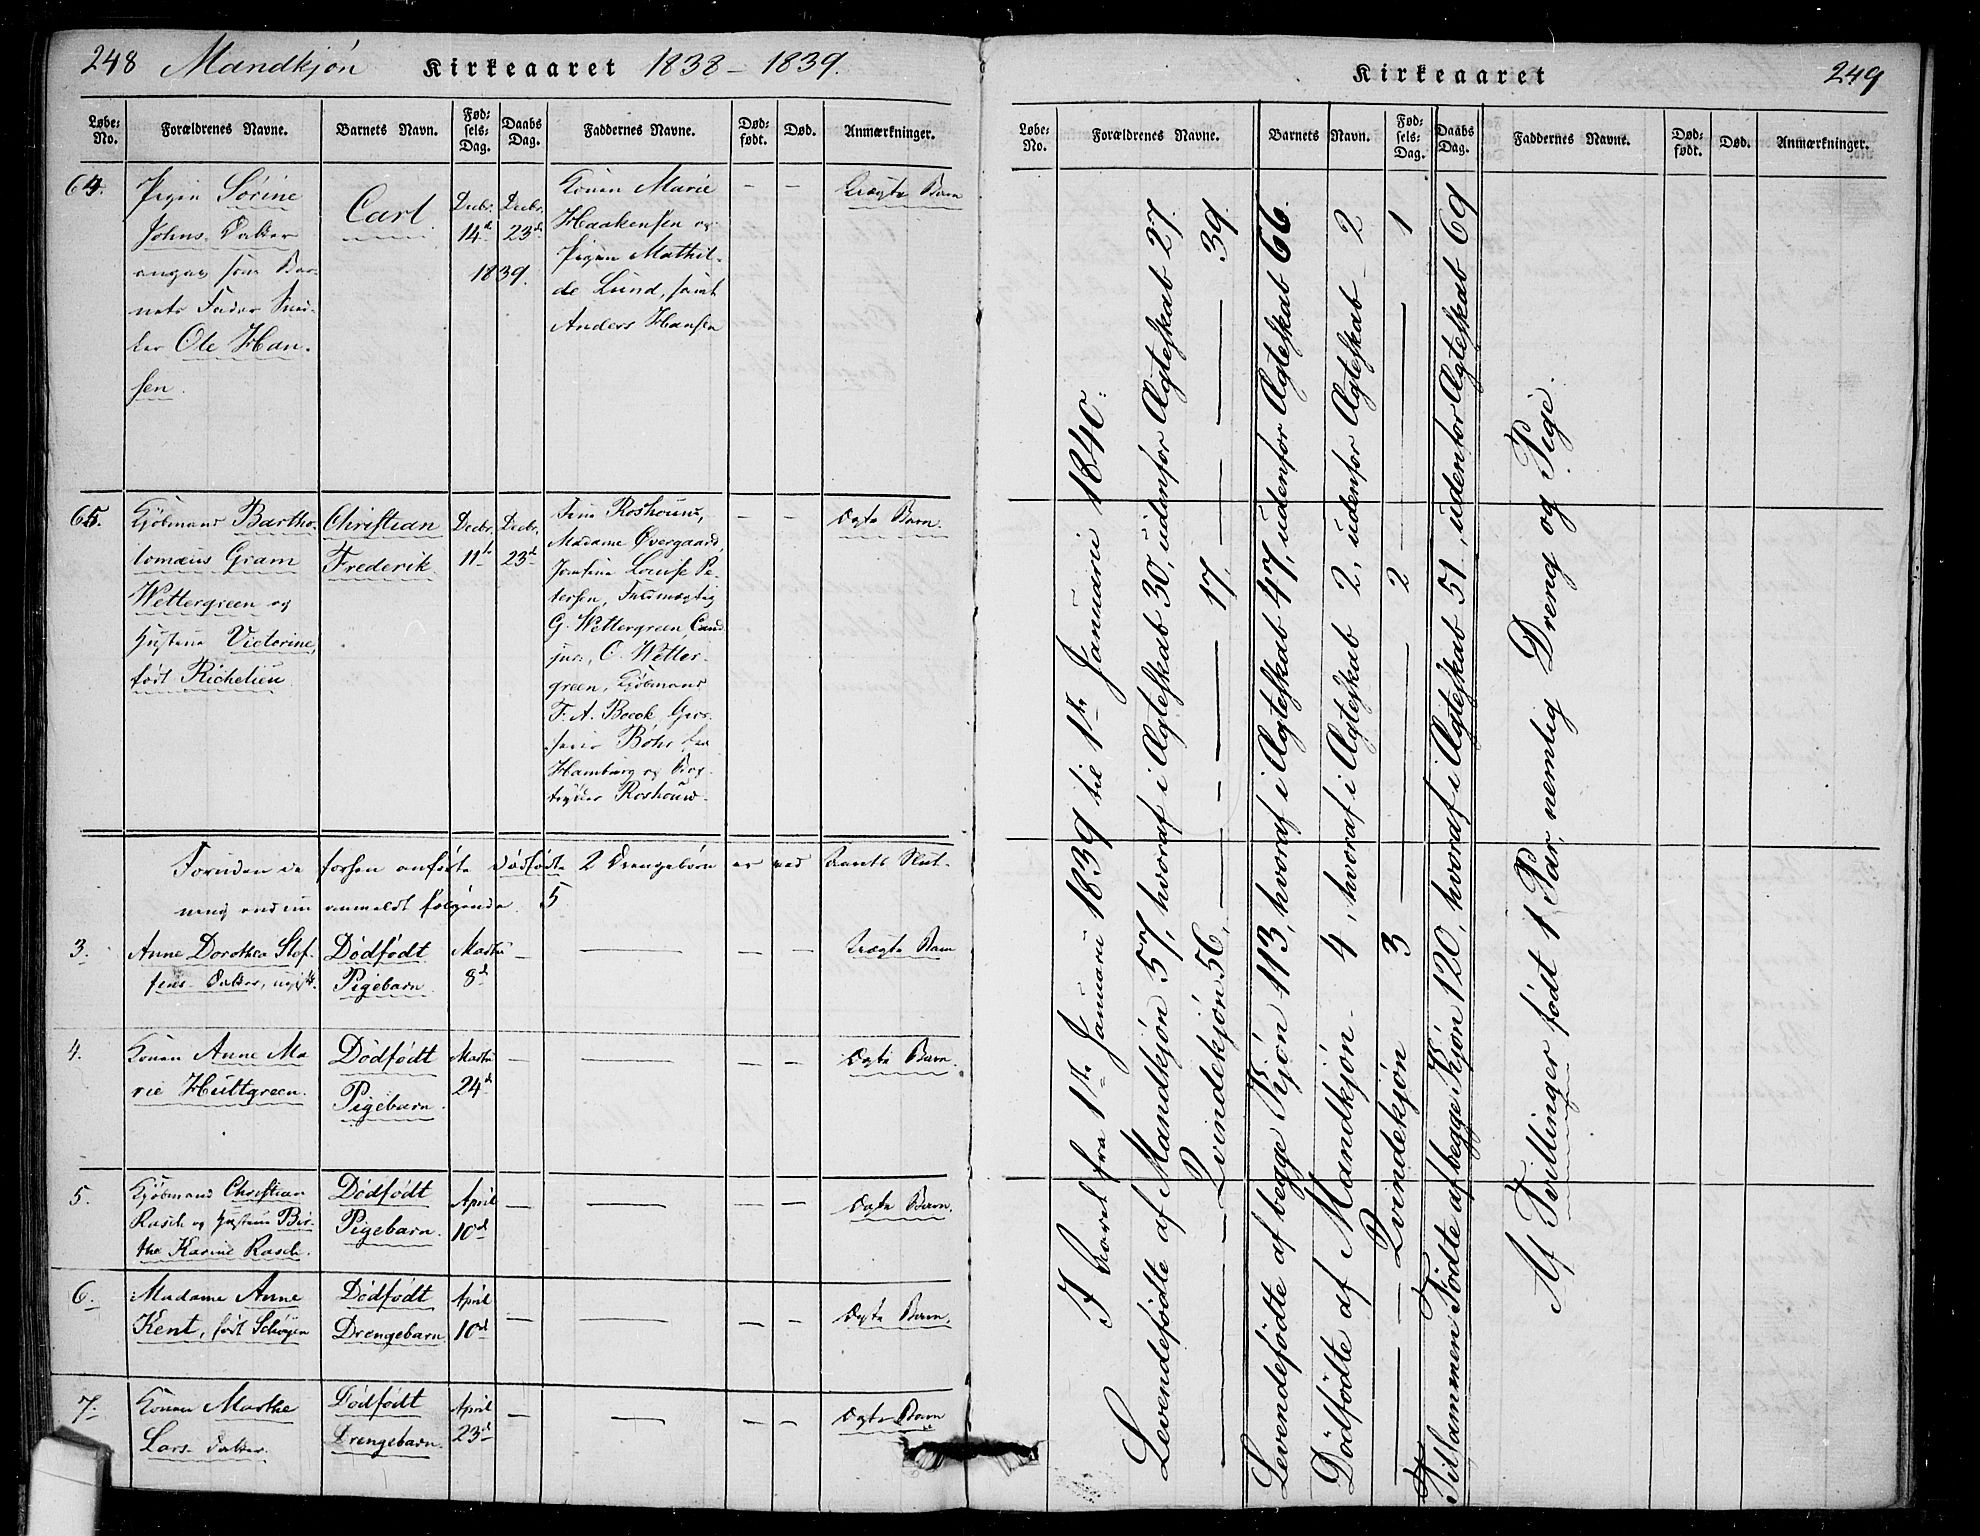 248 Mandkjön Kirkeaaret 1838 – 1839.
Løbe-No. Forældrenes Navne. Barnets Navn. Fød-sels-Dag. Daabs Dag. Faddernes Navne. Død-født. Død. Anmærkninger.
64.
Pigen Sørine
Johns Datter
angav som Bar-
nets Fader
Ole Han-
sen.
Carl
Decbr. 14d
Decbr. 23d
1839.
Konen Marie
Haakensen og
Pigen Mathil-
de Lund, samt
Anders Hansen
— —
Uægte Barn
65.
Kjöbmand Bartho-
lomæus Gram
Wettergreen og
Hustrue Victorine,
født Richelieu
Christian
Frederik
Decbr. 11te
Decbr. 23d
Roshouw,
Madame Overgaard,
Jomfrue Louise Pe-
tersen, Fuldmægtig
G. Wettergreen, Cand.
jur. C. Wetter-
green, Kjöbmand
F. A. Boeck,
Böhr fra
Hamburg og
Roshouw.
— —
Ægte Barn.
Foruden de forhen anførte Dødfødte 2 Drengebörn er ved Aarets Slut-
ning endnu anmeldt følgende 5
3.
Anne Dorothea Stef-
fens Datter, ugift.
Dödfödt
Pigebarn
Martii
8d
— — — —
Uægte Barn
4.
Konen Anne Ma
rie Hultgreen.
Dödfödt
Pigebarn.
Martii
24d
— — — —
Ægte Barn.
5.
Kjöbmand Christian
Rasch og Hustrue Bir-
the Karine Rasch.
Dödfödt
Pigebarn.
April
10d
— — — —
Ægte Barn.
6.
Madame Anne
Kent, født Schøyen
Dödfödt
Drengebarn.
April
10d
— — — —
Ægte Barn.
7.
Konen Marthe
Lars Datter.
Dödfödt
Drengebarn.
April
23d
— — — —
Ægte Barn
Kirkeaaret 249
Løbe-No. Forældrenes Navne. Barnets Navn. Fød-sels-Dag. Daabs Dag. Faddernes Navne. Død-født. Død. Anmærkninger.
I Aaret fra 1ste Januari 1839 til 1ste Januari 1840:
Levendefødte af Mandkjön 57, hvoraf i Ægteskab 30, udenfor Ægteskab 27.
— — Qvindekjön 56, — — 17, — — 39.
Levendefødte af begge Kjön 113, hvoraf i Ægteskab 47, udenfor Ægteskab 66.
Dödfödte af Mandkjön 4, hvoraf i Ægteskab 2, udenfor Ægteskab 2
— — Qvindekjön 3 — 2 — 1
Tilsammen Födte af begge Kjön 120, hvoraf i Ægteskab 51, udenfor Ægteskab 69
Af Tvillinger født 1 Par, nemlig Dreng og Pige.